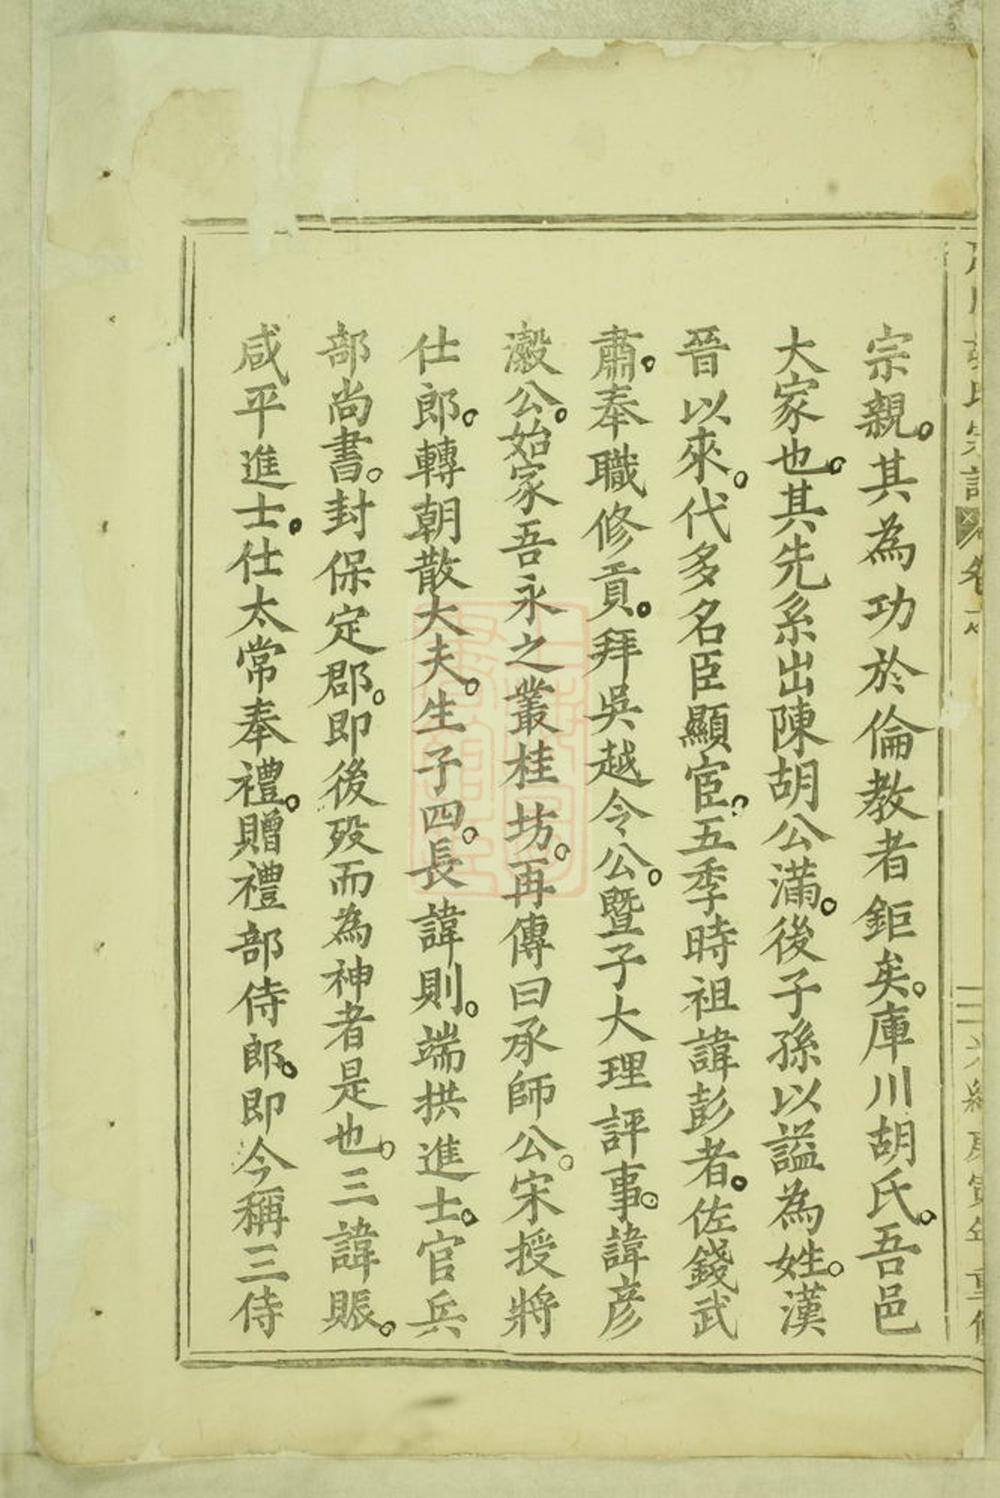 宗親。其為功於倫教者鉅矣。庫川胡氏。吾邑
大家也。其先系出陳胡公滿。後子孫以謚為姓。漢
晉以來。代多名臣顯宦。五季時祖諱彭者。佐錢武
肅。奉職修貢。拜吳越令公。暨子大理評事。諱彥
瀫公。始家吾永之叢桂坊。再傳曰承師公。宋授將
仕郎。轉朝散大夫。生子四。長諱則。端拱進士。官兵
部尚書。封保定郡。即後歿而為神者是也。三諱賑。
咸平進士。仕太常奉禮。贈禮部侍郎。即今稱三侍
胡氏宗譜 卷 二 光緒庚寅年重修